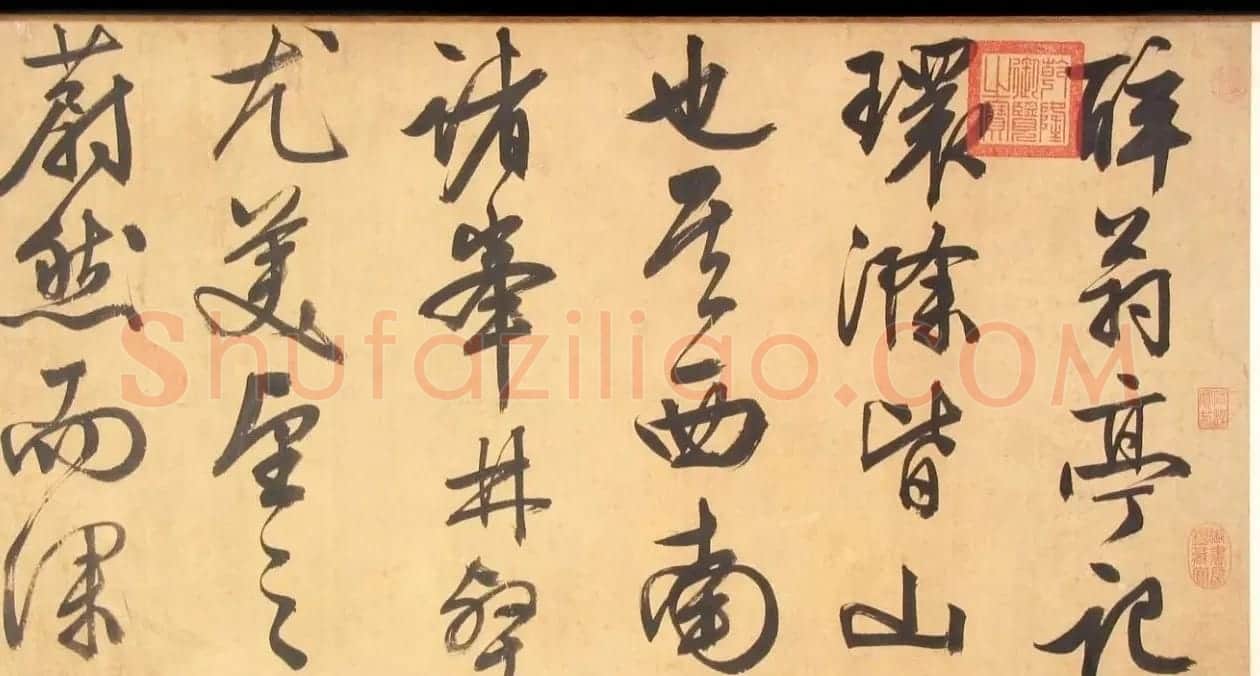 醉翁亭記
環滁皆山
也其西南
諸峯林壑
尤美望之
蔚然而深
乾隆御覽之寶
Shufaziliao.COM